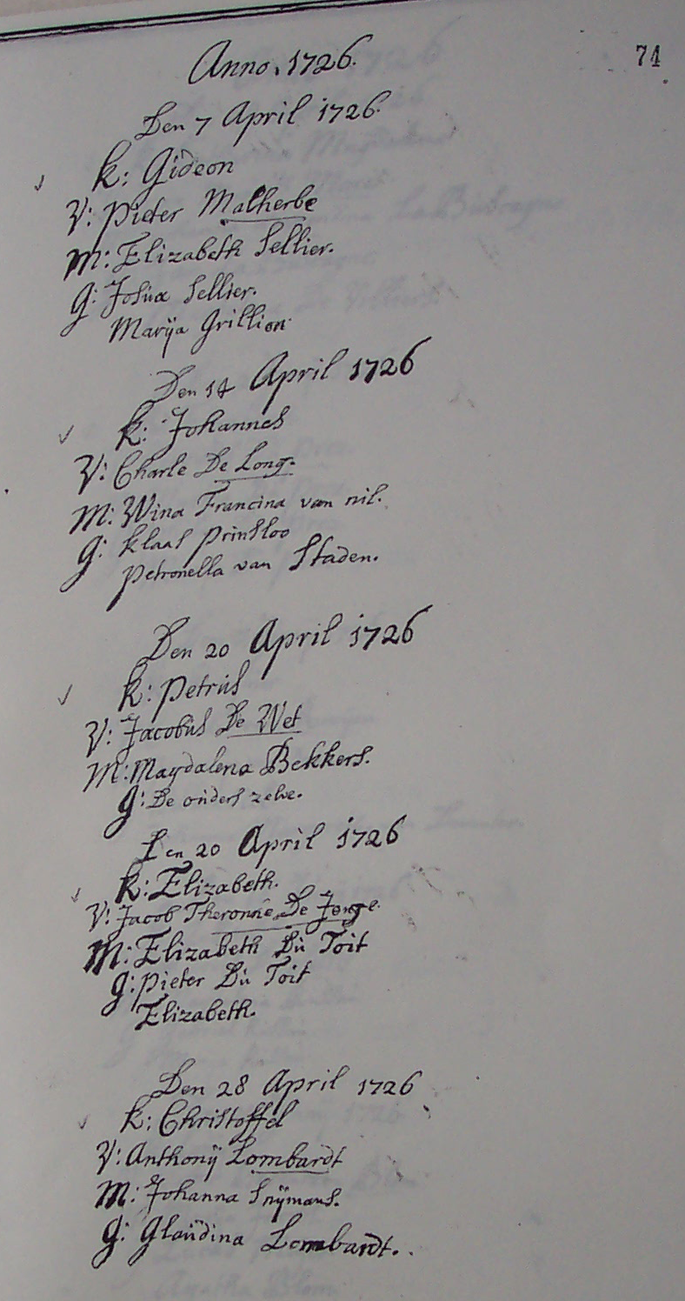 74
Anno. 1726.
Den 7 April 1726.
K: Gideon
V: Pieter Malherbe
M: Elizabeth Sellier.
G: Josua Sellier.
Marÿa Grillion
Den 14 April 1726
K: Johannes
V: Charle De Long.
M: Wina Francina van nil.
G: Klaas Prinsloo
Petronella van Staden.
Den 20 April 1726
K: Petrus
V: Jacobus De Wet
M: Magdalena Bekkers.
G: De ouders zelve.
Den 20 April 1726
K: Elizabeth.
V: Jacob Theronne De Jonge.
M: Elizabeth Du Toit
G: Pieter Du Toit
Elizabeth.
Den 28 April 1726
K: Christoffel
V: Anthonÿ Lombardt
M: Johanna Snÿmans.
G: Glaudina Lombardt.